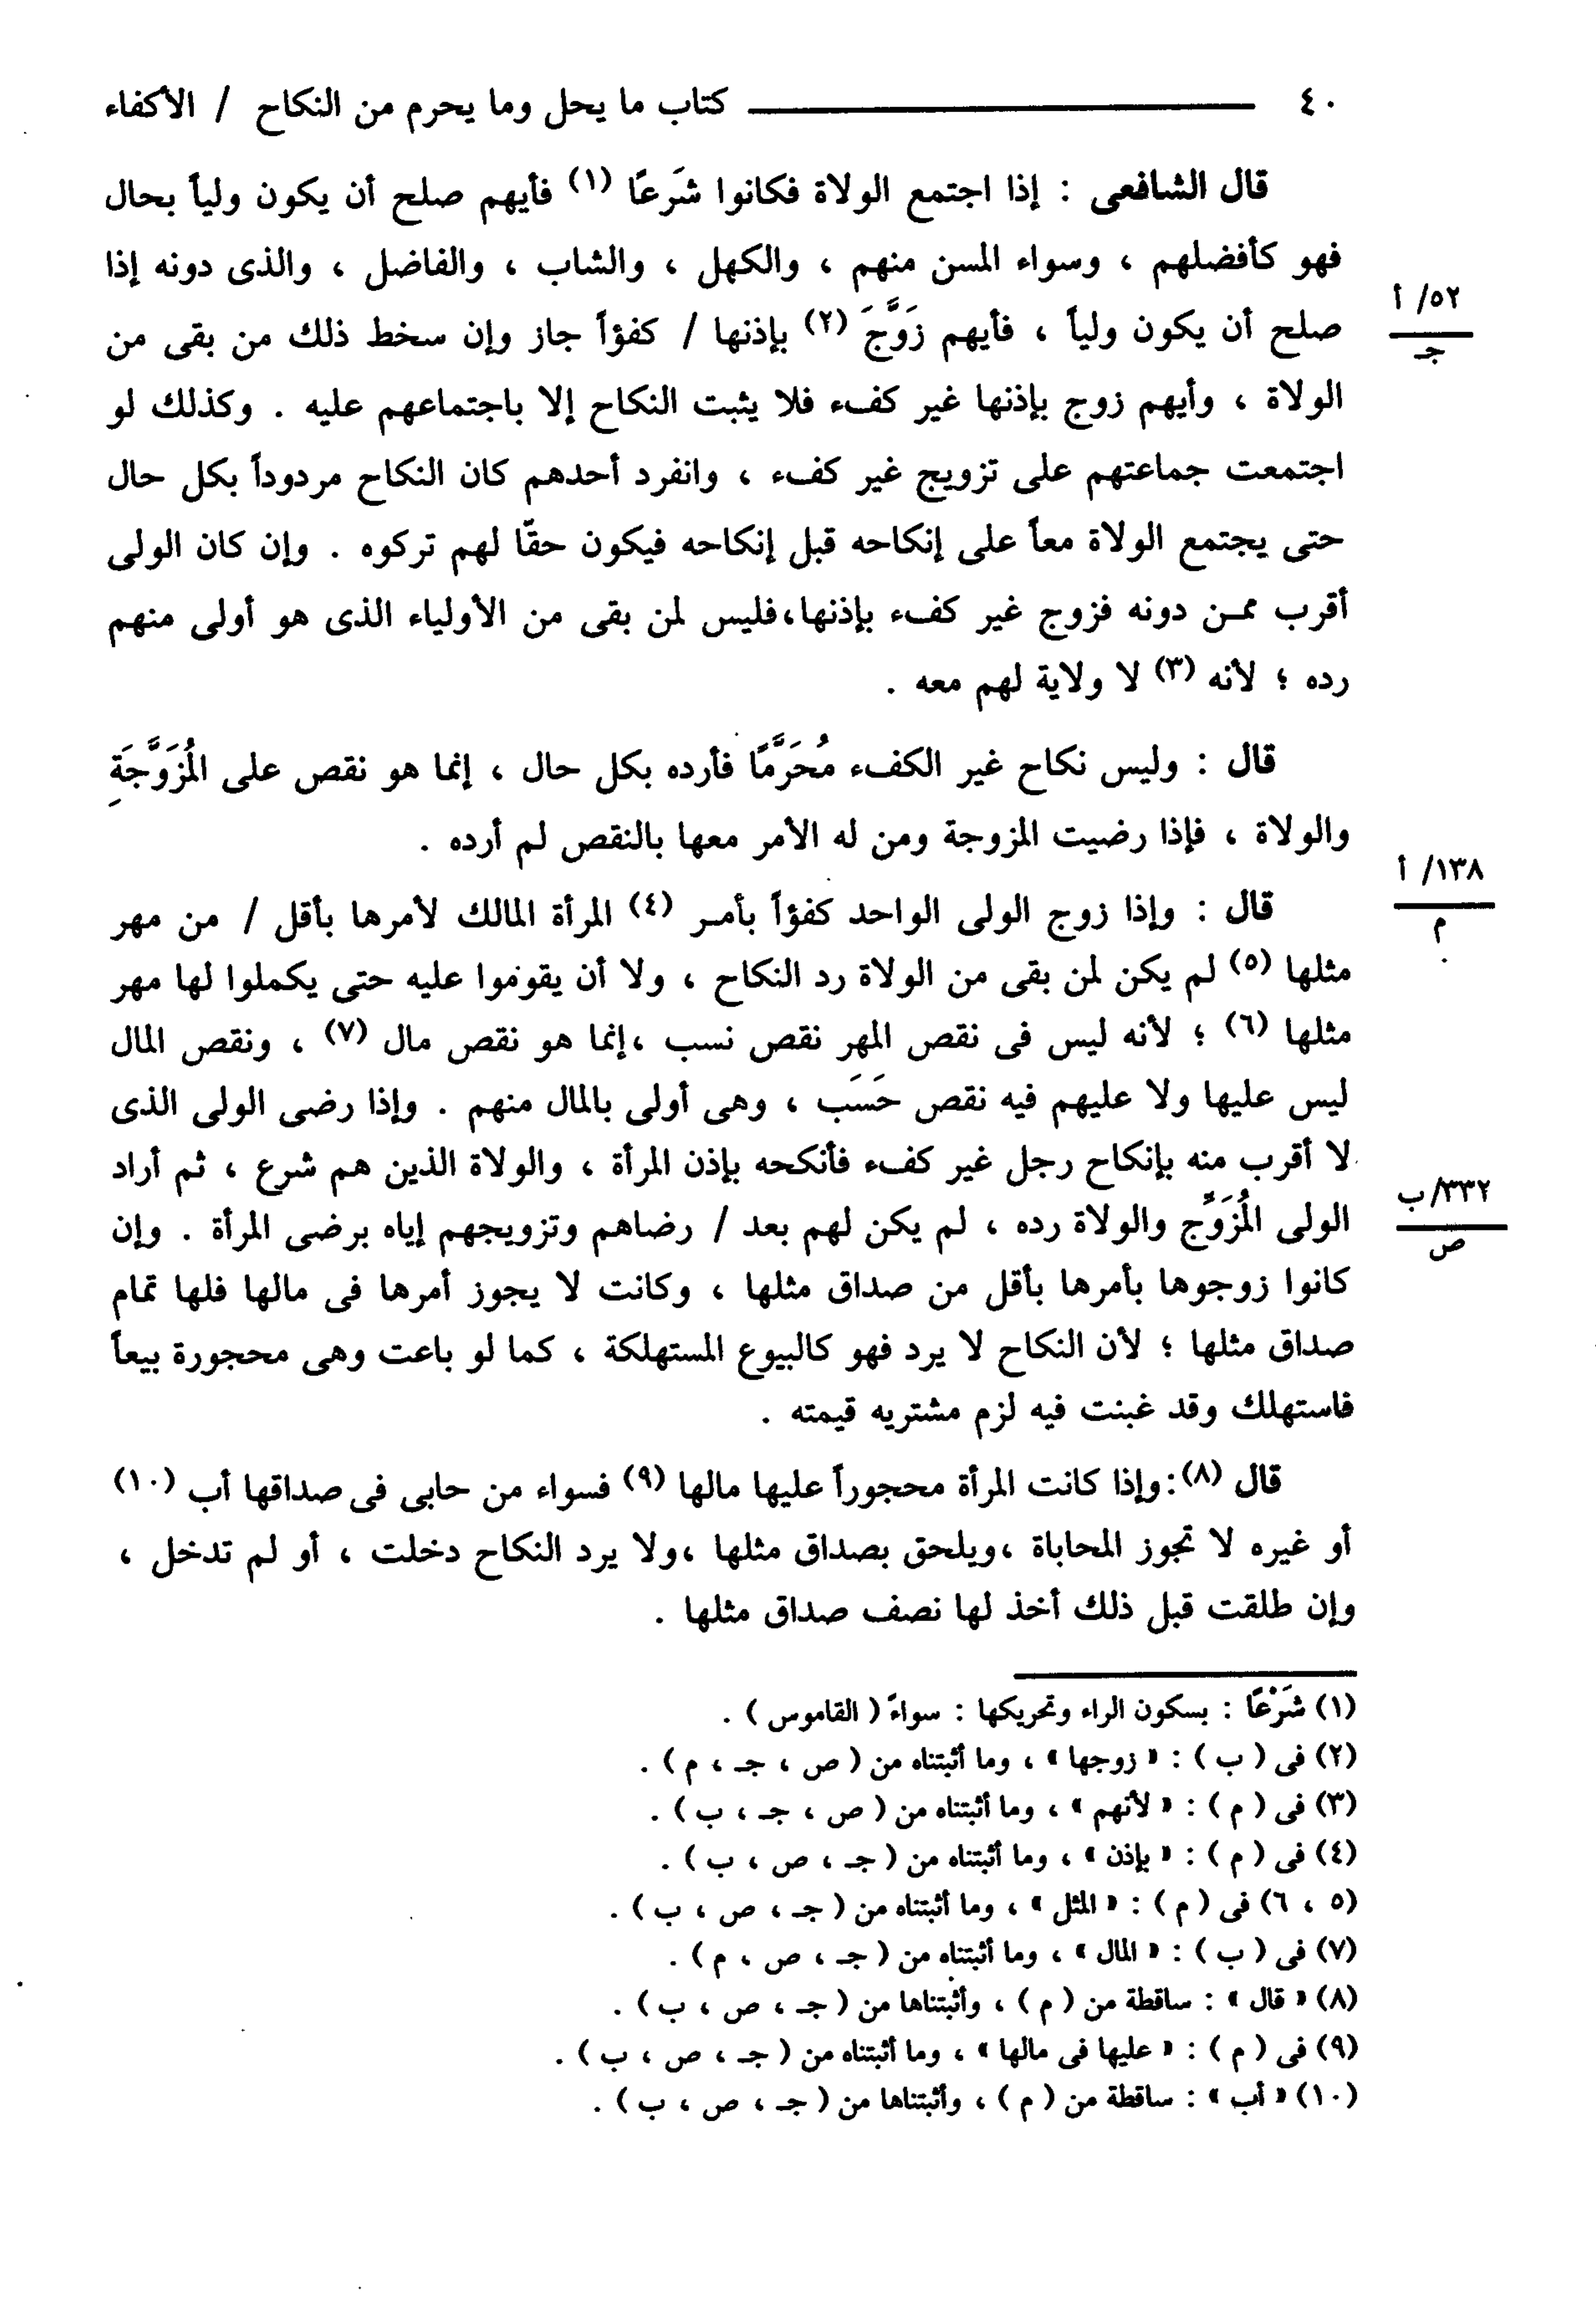 ٤٠ ــــــ كتاب ما يحل وما يحرم من النكاح / الأكفاء
قال الشافعى : إذا اجتمع الولاة فكانوا شَرعًا (١) فأيهم صلح أن يكون ولياً بحال
فهو كأفضلهم ، وسواء المسن منهم ، والكهل ، والشاب ، والفاضل ، والذى دونه إذا
٥٢/ أ
جـ
صلح أن يكون ولياً ، فأيهم زَوَّجَ (٢) بإذنها / كفؤاً جاز وإن سخط ذلك من بقى من
الولاة ، وأيهم زوج بإذنها غير كفء فلا يثبت النكاح إلا باجتماعهم عليه . وكذلك لو
اجتمعت جماعتهم على تزويج غير كفء ، وانفرد أحدهم كان النكاح مردوداً بكل حال
حتى يجتمع الولاة معاً على إنكاحه قبل إنكاحه فيكون حقّا لهم تركوه . وإن كان الولى
أقرب ممـن دونه فزوج غير كفء بإذنها،فليس لمن بقى من الأولياء الذى هو أولى منهم
رده ؛ لأنه (٣) لا ولاية لهم معه .
قال : وليس نكاح غير الكفء مُحَرَّمًا فأرده بكل حال ، إنما هو نقص على المُزَوَّجَةِ
والولاة ، فإذا رضيت المزوجة ومن له الأمر معها بالنقص لم أرده .
١٣٨/ أ
م
قال : وإذا زوج الولى الواحد كفؤاً بأمـر (٤) المرأة المالك لأمرها بأقل / من مهر
مثلها (٥) لم يكن لمن بقى من الولاة رد النكاح ، ولا أن يقوموا عليه حتى يكملوا لها مهر
مثلها (٦) ؛ لأنه ليس فى نقص المهر نقص نسب ،إنما هو نقص مال (٧) ، ونقص المال
ليس عليها ولا عليهم فيه نقص حَسَب ، وهى أولى بالمال منهم . وإذا رضى الولى الذى
لا أقرب منه بإنكاح رجل غير كفء فأنكحه بإذن المرأة ، والولاة الذين هم شرع ، ثم أراد
٣٣٢/ب
ص
الولى المُزَوِّج والولاة رده ، لم يكن لهم بعد / رضاهم وتزويجهم إياه برضى المرأة . وإن
كانوا زوجوها بأمرها بأقل من صداق مثلها ، وكانت لا يجوز أمرها فى مالها فلها تمام
صداق مثلها ؛ لأن النكاح لا يرد فهو كالبيوع المستهلكة ، كما لو باعت وهى محجورة بيعاً
فاستهلك وقد غبنت فيه لزم مشتريه قيمته .
قال (٨):وإذا كانت المرأة محجوراً عليها مالها (٩) فسواء من حابى فى صداقها أب (١٠)
أو غيره لا تجوز المحاباة ،ويلحق بصداق مثلها ،ولا يرد النكاح دخلت ، أو لم تدخل ،
وإن طلقت قبل ذلك أخذ لها نصف صداق مثلها .
(١) شَرْعًا : بسكون الراء وتحريكها : سواءً ( القاموس ) .
(٢) فى ( ب ) : « زوجها » ، وما أثبتناه من ( ص ، جـ ، م ) .
(٣) فى ( م ) : « لأنهم » ، وما أثبتناه من ( ص ، جـ ، ب ) .
(٤) فى ( م ) : « بإذن » ، وما أثبتناه من ( جـ ، ص ، ب ) .
(٥ ، ٦) فى ( م ) : « المثل » ، وما أثبتناه من ( جـ ، ص ، ب ) .
(٧) فى ( ب ) : « المال » ، وما أثبتناه من ( جـ ، ص ، م ) .
(٨) « قال » : ساقطة من ( م ) ، وأثبتناها من ( جـ ، ص ، ب ) .
(٩) فى ( م ) : « عليها فى مالها » ، وما أثبتناه من ( جـ ، ص ، ب ) .
(١٠) « أب » : ساقطة من ( م ) ، وأثبتناها من ( جـ ، ص ، ب ) .